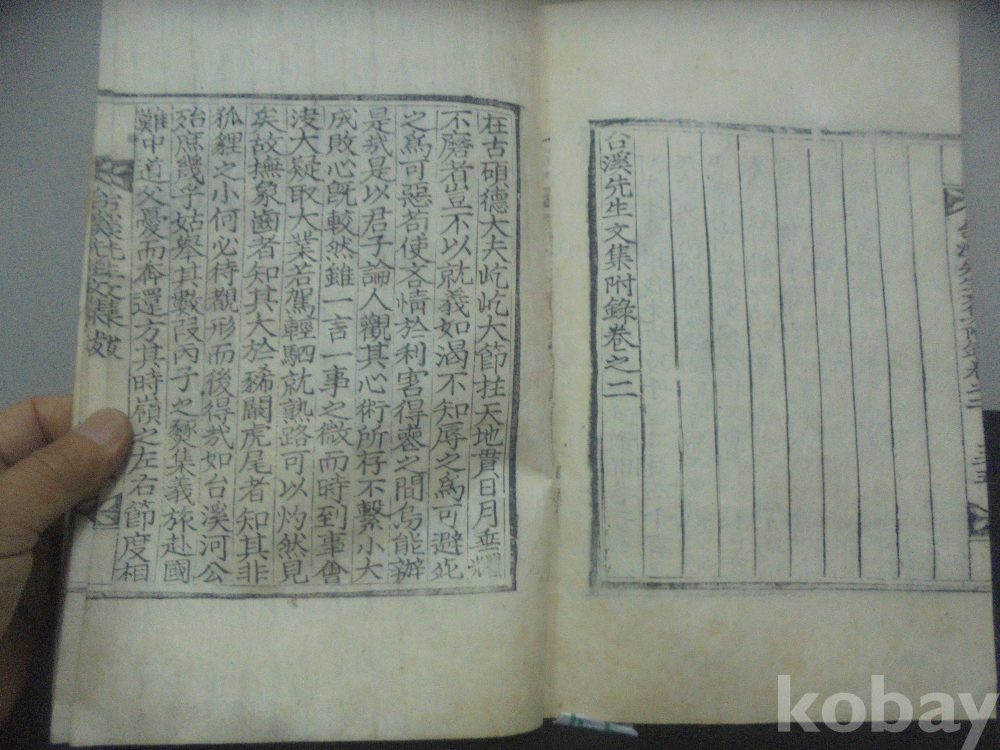 台溪先生文集附錄卷之二
在古碩德大夫屹屹大節拄天地貫日月垂耀
不磨者豈不以就義如渴不知辱之爲可避死
之爲可惡苟使吝情於利害得喪之間烏能辦
是哉是以君子論人觀其心術所存不繫小大
成敗心旣較然雖一言一事之微而時到事會
決大疑取大業若駕輕駟就熟路可以灼然見
矣故撫象齒者知其大於豨闢虎尾者知其非
狐狸之小何必待觀形而後得哉如台溪河公
殆庶幾乎姑擧其數段丙子之燹集義旅赴國
難中道父憂而奔還方其時嶺之左右節度相
台溪先生文集 跋
kobay